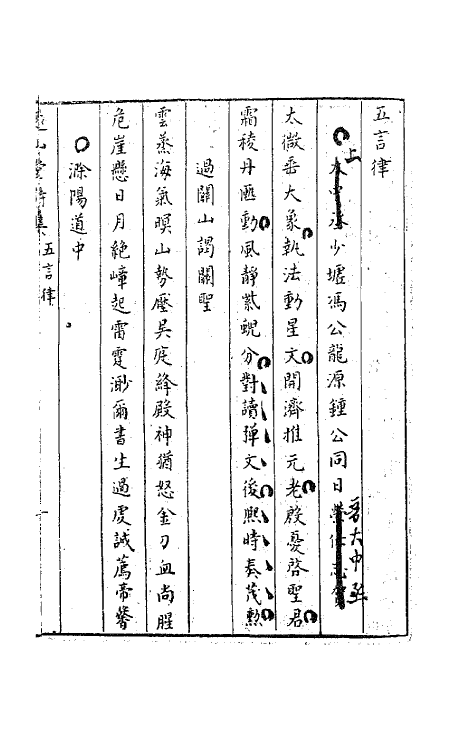 五言律
上大中丞少墟馮公龍源鍾公同日晉大中丞
太微垂大象執法動星文開濟推元老殷憂啓聖君
霜稜丹匭動風靜紫蜺分對讀彈文後熙時奏茂勲
過關山謁關聖
雲蒸海氣暝山勢壓吳疾絳殿神猶怒金刀血尚腥
危崖懸日月絶嶂起雷霆渺爾書生過虔誠薦帝馨
滁陽道中
遠山堂詩集 五言律 一